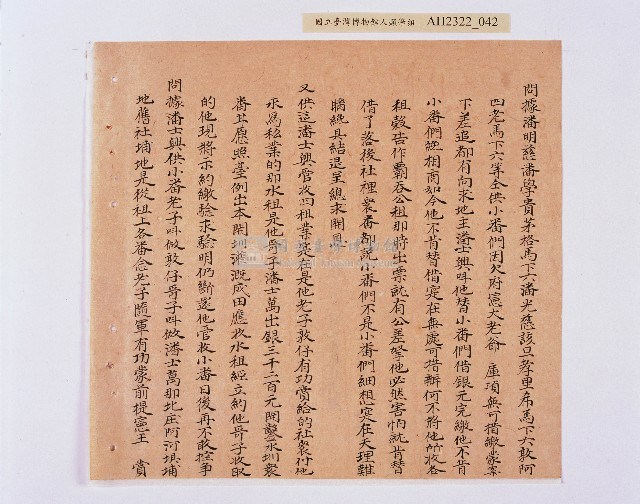 國立臺灣博物館人類學組 AH2322_042
問據潘明慈潘學貴茅格馬下六潘光慈該旦孝里希馬下六敦阿
四老馬下六等仝供小番們因欠府憲大老爺 庫項無可措繳蒙票
下差追都有向求地主潘士興叫他替小番們借銀元完繳他不肯
小番們纔相商如今他不肯替借寔在無處可措辦何不將他所收各
租穀告作霸吞公租那時出票就有公差拏他必然害怕就肯替
借了落後社裡衆番都說小番們不是小番們細想寔在天理難
瞞纔具結退呈總求開恩
又供這潘士興管收四租業寔在是他老子敦仔有功賞給的社衆付他
永為私業的那水租是他哥子潘士萬出銀三千二百元開鑿水圳衆
番出愿照臺例出本開圳灌溉成田應收水租經立約他哥子收取
的他現將示約繳驗求驗明仍斷還他管收小番日後再不敢控爭
問據潘士興供小番老子叫做敦仔哥子叫做潘士萬那北庄阿河垻埔
地舊社埔地是從祖上各番念老子隨軍有功蒙前提憲王 賞